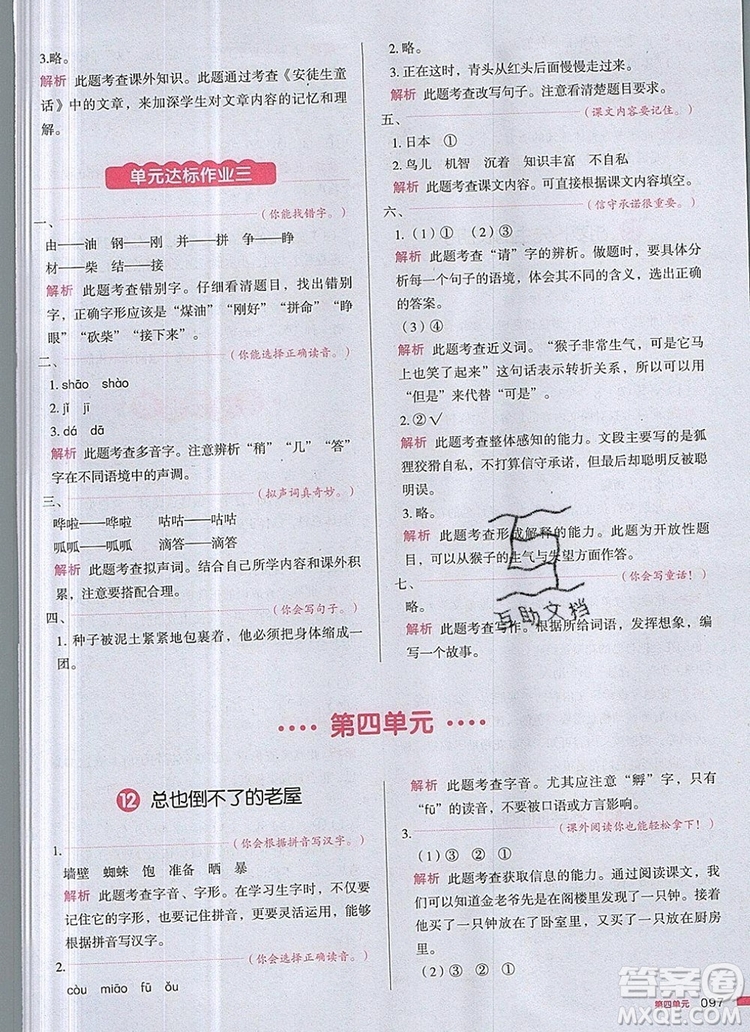 3.略。
解析 此题考查课外知识。此题通过考查《安徒生童
话》中的文章，来加深学生对文章内容的记忆和理
解。
单元达标作业三
一、
（你能找错字。）
由——油 钢——刚 并——拼 争——睁
材——柴 结——接
解析 此题考查错别字。仔细看清题目，找出错别
字，正确字形应该是“煤油”“刚好”“拼命”“睁
眼”“砍柴”“接下来”。
二、
（你能选择正确读音。）
1. shāo shào
2. jǐ jī
3. dá dā
解析 此题考查多音字。注意辨析“稍”“几”“答”
字在不同语境中的声调。
三、
（拟声词真奇妙。）
哗啦——哗啦 咕咕——咕咕
呱呱——呱呱 滴答——滴答
解析 此题考查拟声词。结合自己所学内容和课外积
累，注意搭配合理。
四、
（你会写句子。）
1. 种子被泥土紧紧地包裹着，他必须把身体缩成一
团。
2. 略。
3. 正在这时，青头从红头后面慢慢走过来。
解析 此题考查改写句子。注意看清楚题目要求。
五、
（课文内容要记住。）
1. 日本 ①
2. 鸟儿 机智 沉着 知识丰富 不自私
解析 此题考查课文内容。可直接根据课文内容填空。
六、
（信守承诺很重要。）
1.（1）① （2）③
解析 此题考查“请”字的辨析。做题时，要具体分
析每一个句子的语境，体会其不同的含义，选出正确
的答案。
（3）④
解析 此题考查近义词。“猴子非常生气，可是它马
上也笑了起来”这句话表示转折关系，所以可以用
“但是”来代替“可是”。
2. ②√
解析 此题考查整体感知的能力。文段主要写的是狐
狸狡猾自私，不打算信守承诺，所以却聪明反被聪
明误。
3. 略。
解析 此题考查形成解释的能力。此题为开放性题
目，可以从猴子的生气与失望方面作答。
七、
（你会写童话！）
略。
解析 此题考查写作。根据所给词语，发挥想象，编
写一个故事。
互助文档
第四单元
12 总也倒不了的老屋
1.
（你会根据拼音写汉字。）
墙壁 蜘蛛 饱 准备 晒 暴
解析 此题考查字音、字形。在学习生字时，不仅要
记住它的字形，也要记清楚字音，更要灵活运用，能
根据拼音写汉字。
2.
（你会选择正确读音。）
còu miāo fū ǒu
解析 此题考查字音。尤其应注意“孵”字，只有
“fū”的读音，不要被口语或方言影响。
3.
（课外阅读你也能轻松拿下！）
（1）③ ② ①
解析 此题考查获取信息的能力。通过阅读课文，我
们可以知道金老爷先是在阁楼里发现了一只钟。接着
他买了一只钟放在了卧室里，又买了一只放在厨房
里。
（2）② ③ ①
第四单元 097
答案圈
MXQE.COM